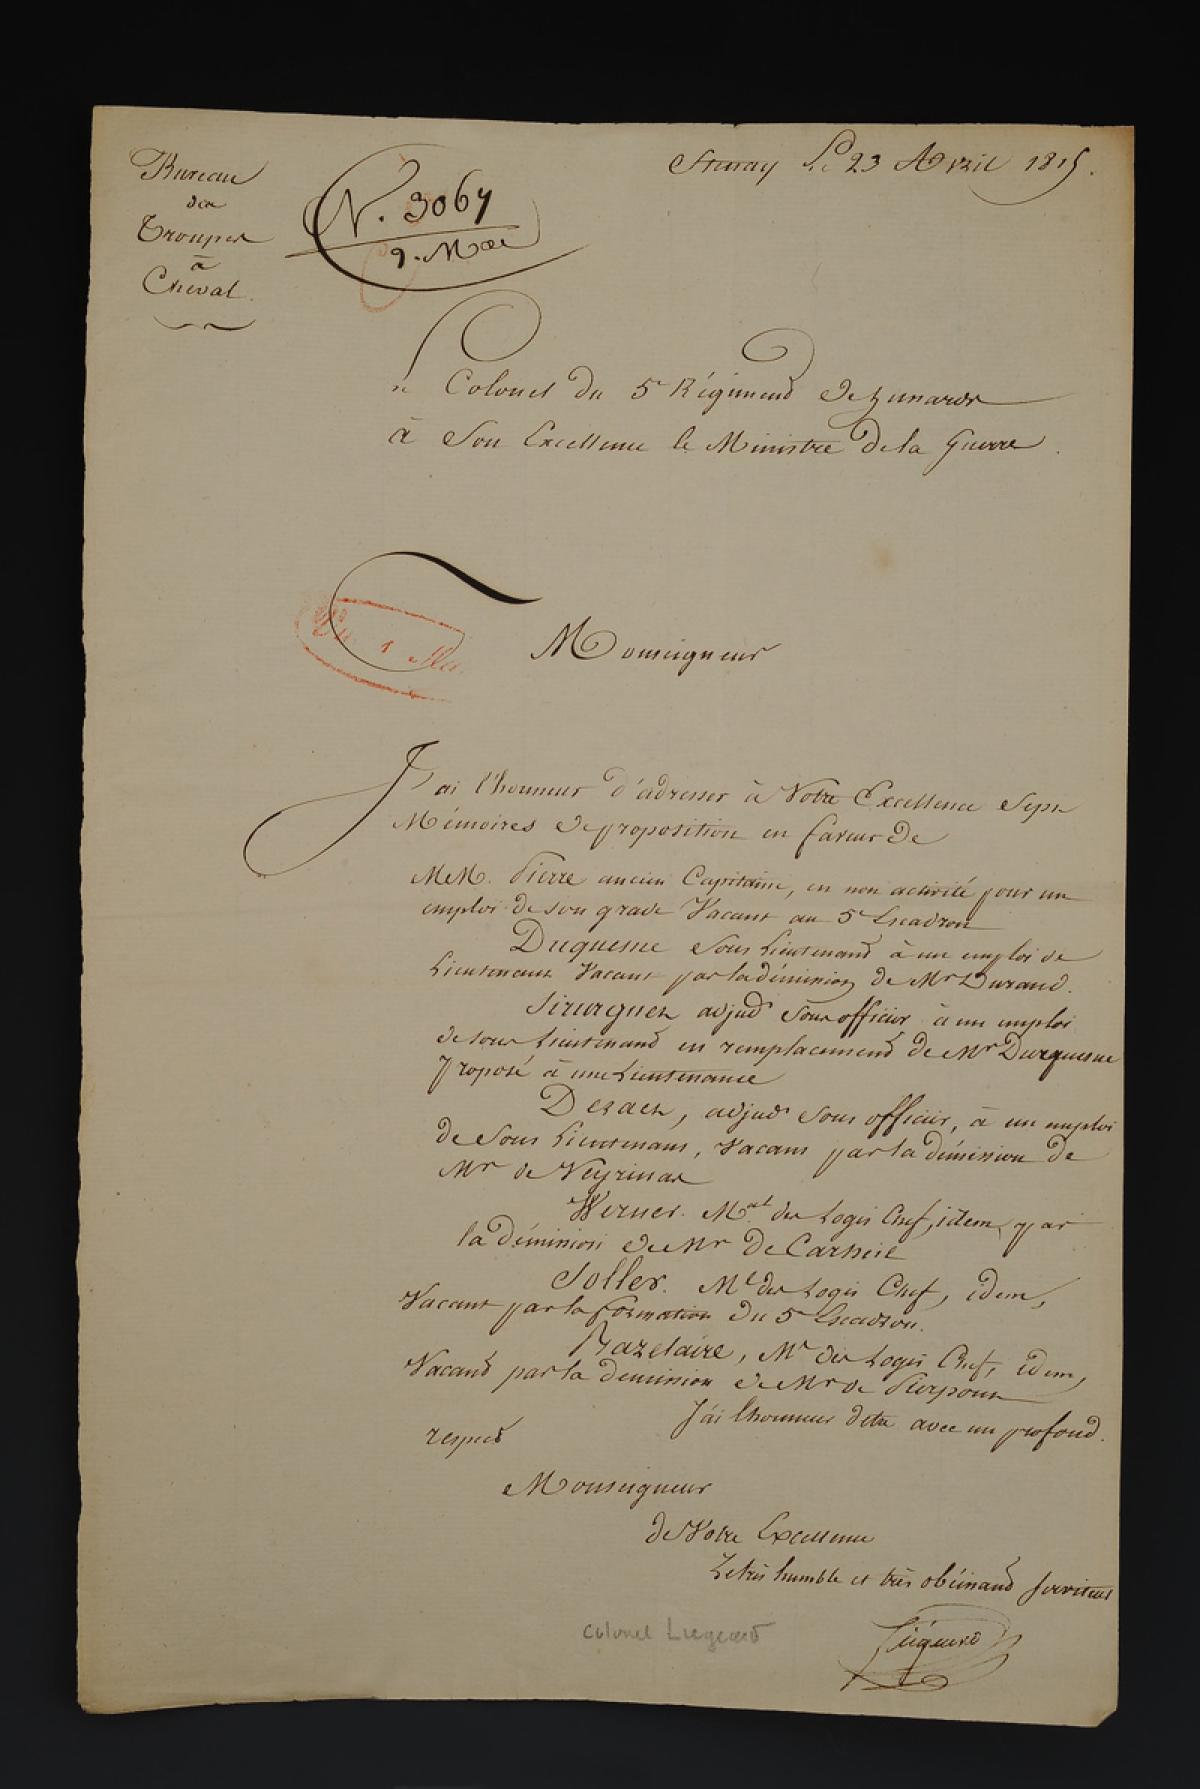 Stenay Le 23 Avril 1815.
Bureau
des
Troupes
à
Cheval.
N. 3064
9. Mai
1 Mai
Le Colonel du 5e Régiment de hussards
à Son Excellence le Ministre de la Guerre.
Monseigneur
J'ai l'honneur d'adresser à Votre Excellence Sept
Mémoires de proposition en faveur de
M.M. Pierre ancien Capitaine, en non activité pour un
emploi de son grade Vacant au 5e Escadron
Duquesne Sous Lieutenant à un emploi de
Lieutenant Vacant par la démission de Mr Durand.
adjudt Sous officier à un emploi
de sous Lieutenant en remplacement de Mr Duquesne
proposé à une Lieutenance
adjudt Sous officier, à un emploi
de Sous Lieutenant, Vacant par la démission de
Mr de Veyrinas
Werner. Mal des Logis Chef, idem, par
la démission de Mr De
Soller. Ml des Logis Chef, idem,
Vacant par la formation du 5e Escadron.
Bazelaire, Ml des Logis Chef, idem,
Vacant par la démission de Mr de Pierpont
J'ai l'honneur d'etre avec un profond
respect
Monseigneur
de Votre Excellence
Le très humble et très obéissant serviteur
Liégeard
colonel Liegeard